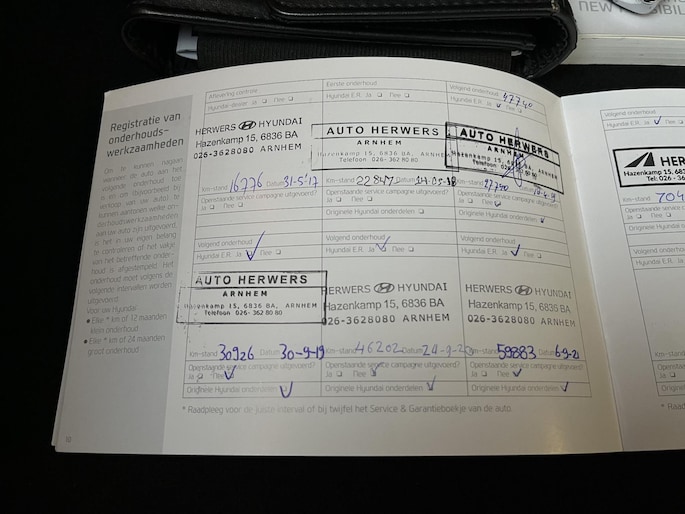 NEW
Registratie van
onderhouds-
werkzaamheden
Om te kunnen nagaan
wanneer de auto aan het
volgende onderhoud toe
is en om (bijvoorbeeld bij
verkoop van uw auto) te
kunnen aantonen welke on-
derhoudswerkzaamheden
aan uw auto zijn uitgevoerd,
is het in uw eigen belang
te controleren of het vakje
van het betreffende onder-
houd is afgestempeld. Het
onderhoud moet volgens de
volgende intervallen worden
uitgevoerd:
Voor uw Hyundai
• Elke * km of 12 maanden
klein onderhoud
• Elke * km of 24 maanden
groot onderhoud
Aflevering controle
Hyundai-dealer Ja Nee
HERWERS HYUNDAI
Hazenkamp 15, 6836 BA
026-3628080 ARNHEM
Km-stand 16776 Datum 31-5-'17
Openstaande service campagne uitgevoerd?
Ja Nee
Eerste onderhoud
Hyundai E.R. Ja Nee
AUTO HERWERS
ARNHEM
Hazenkamp 15, 6836 BA, ARNHEM
Telefoon 026-362 80 80
Km-stand 22847 Datum 14-05-18
Openstaande service campagne uitgevoerd?
Ja Nee
Originele Hyundai onderdelen
Volgend onderhoud 47740
Hyundai E.R. Ja Nee
AUTO HERWERS
ARNHEM
Hazenkamp 15, 6836 BA, ARNHEM
Telefoon 026-362 80 80
Km-stand Datum
Openstaande service campagne uitgevoerd?
Ja Nee
Originele Hyundai onderdelen
Volgend onderhoud
Hyundai E.R. Ja Nee
AUTO HERWERS
ARNHEM
Hazenkamp 15, 6836 BA, ARNHEM
Telefoon 026-362 80 80
Km-stand 30926 Datum 30-9-19
Openstaande service campagne uitgevoerd?
Ja Nee
Originele Hyundai onderdelen
Volgend onderhoud
Hyundai E.R. Ja Nee
HERWERS HYUNDAI
Hazenkamp 15, 6836 BA
026-3628080 ARNHEM
Km-stand 46202 Datum 24-9-20
Openstaande service campagne uitgevoerd?
Ja Nee
Originele Hyundai onderdelen
Volgend onderhoud
Hyundai E.R. Ja Nee
HERWERS HYUNDAI
Hazenkamp 15, 6836 BA
026-3628080 ARNHEM
Km-stand 59883 Datum 6-9-21
Openstaande service campagne uitgevoerd?
Ja Nee
Originele Hyundai onderdelen
* Raadpleeg voor de juiste interval of bij twijfel het Service & Garantieboekje van de auto.
Volgend onderhoud
Hyundai E.R. Ja Nee
HER
Hazenkamp 15, 683
Tel: 026-36
Km-stand 704
Openstaande service
Ja Nee
Originele Hyundai
Volgend onderhoud
Hyundai E.R. Ja
Km-stand
Openstaande service
Ja Nee
Originele Hyundai